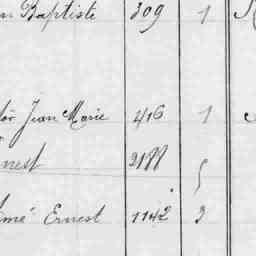 Baptiste 309 1
Jean Marie 416 1
2188 5
Ernest 1142 3